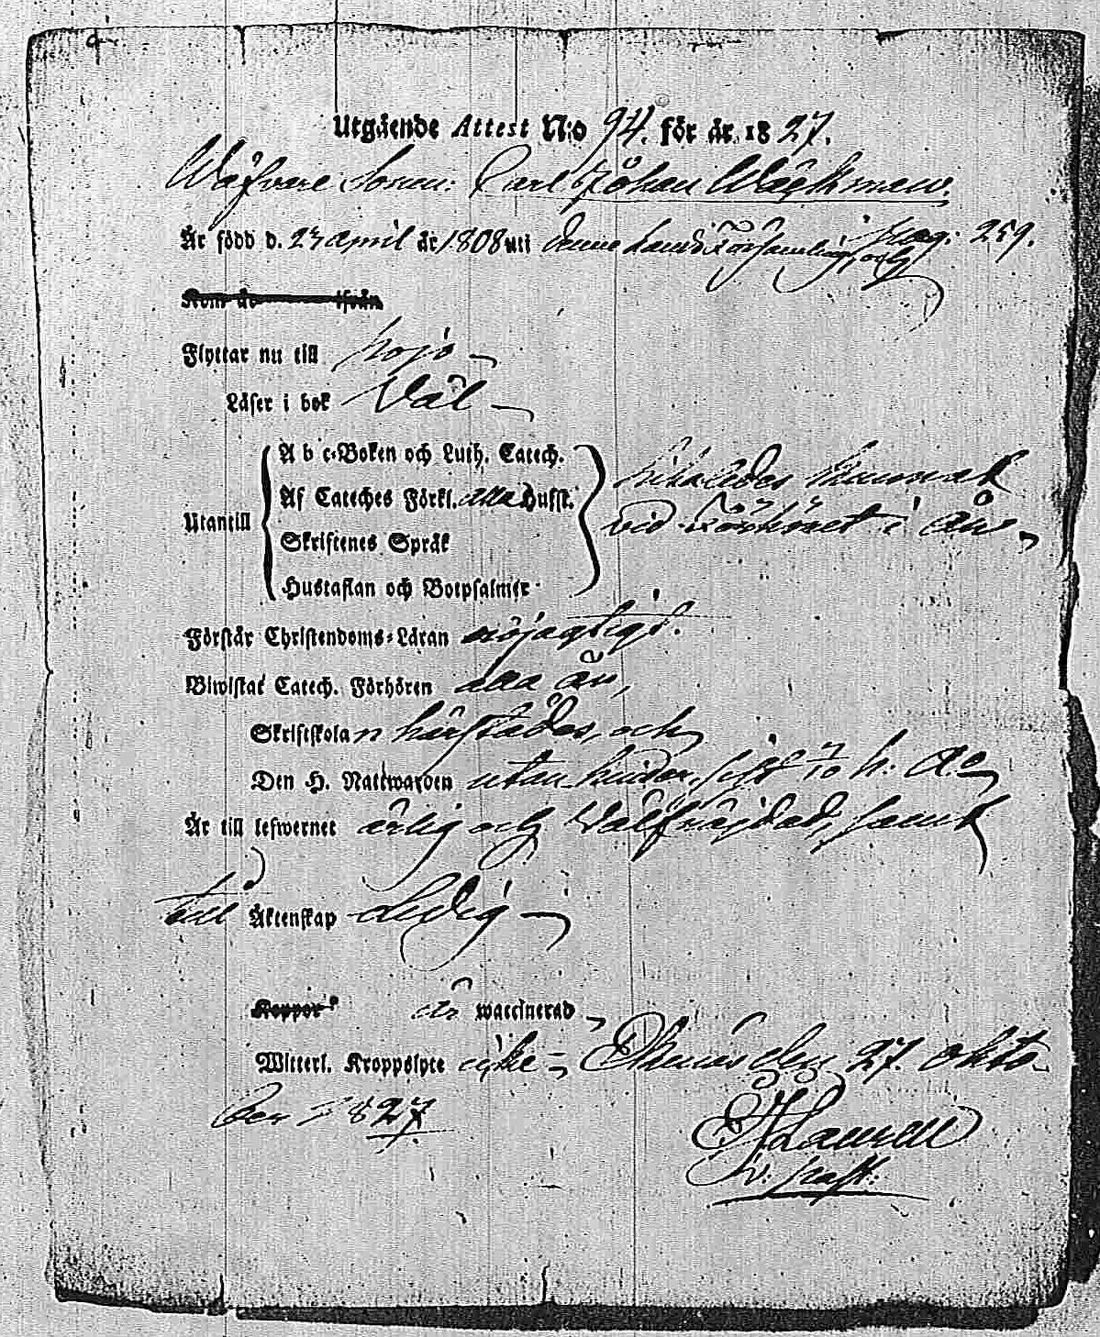 Utgående Attest N:o 94. för år 1827.
Wäfvare Sonen: Carl Johan Wäckman.
Är född d. 23 April år 1808 uti denne Lands Församling, och pag: 259.
Kom år ifrån
Flyttar nu till Pojo
Läser i bok Väl
A b c-Boken och Luth. Catech.
Af Cateches Förkl. alla Hufst.
Utantill
Skriftenes Språk
Hustaflan och Botpsalmer
kunnat
vid Förhöret i år
Förstår Christendoms-Läran nöjagtigt.
Biwistat Catech. Förhören alla år,
Skriftskolan härstädes, och
Den H. Nattwarden utan hinder, sist 7/10 h. a.
Är till lefwernet ärlig och Välfräjdad, samt
till Äktenskap ledig
Koppor är waccinerad
Witterl. Kroppslyte icke Ekenäs den 27. Okto-
ber 1827